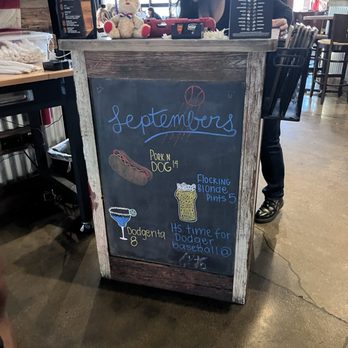 Septembers
PORK N
DOG 14
FLOCKING
BLONDE
PINTS 5
Dodgerita
8
Its time for
Dodger
baseball @